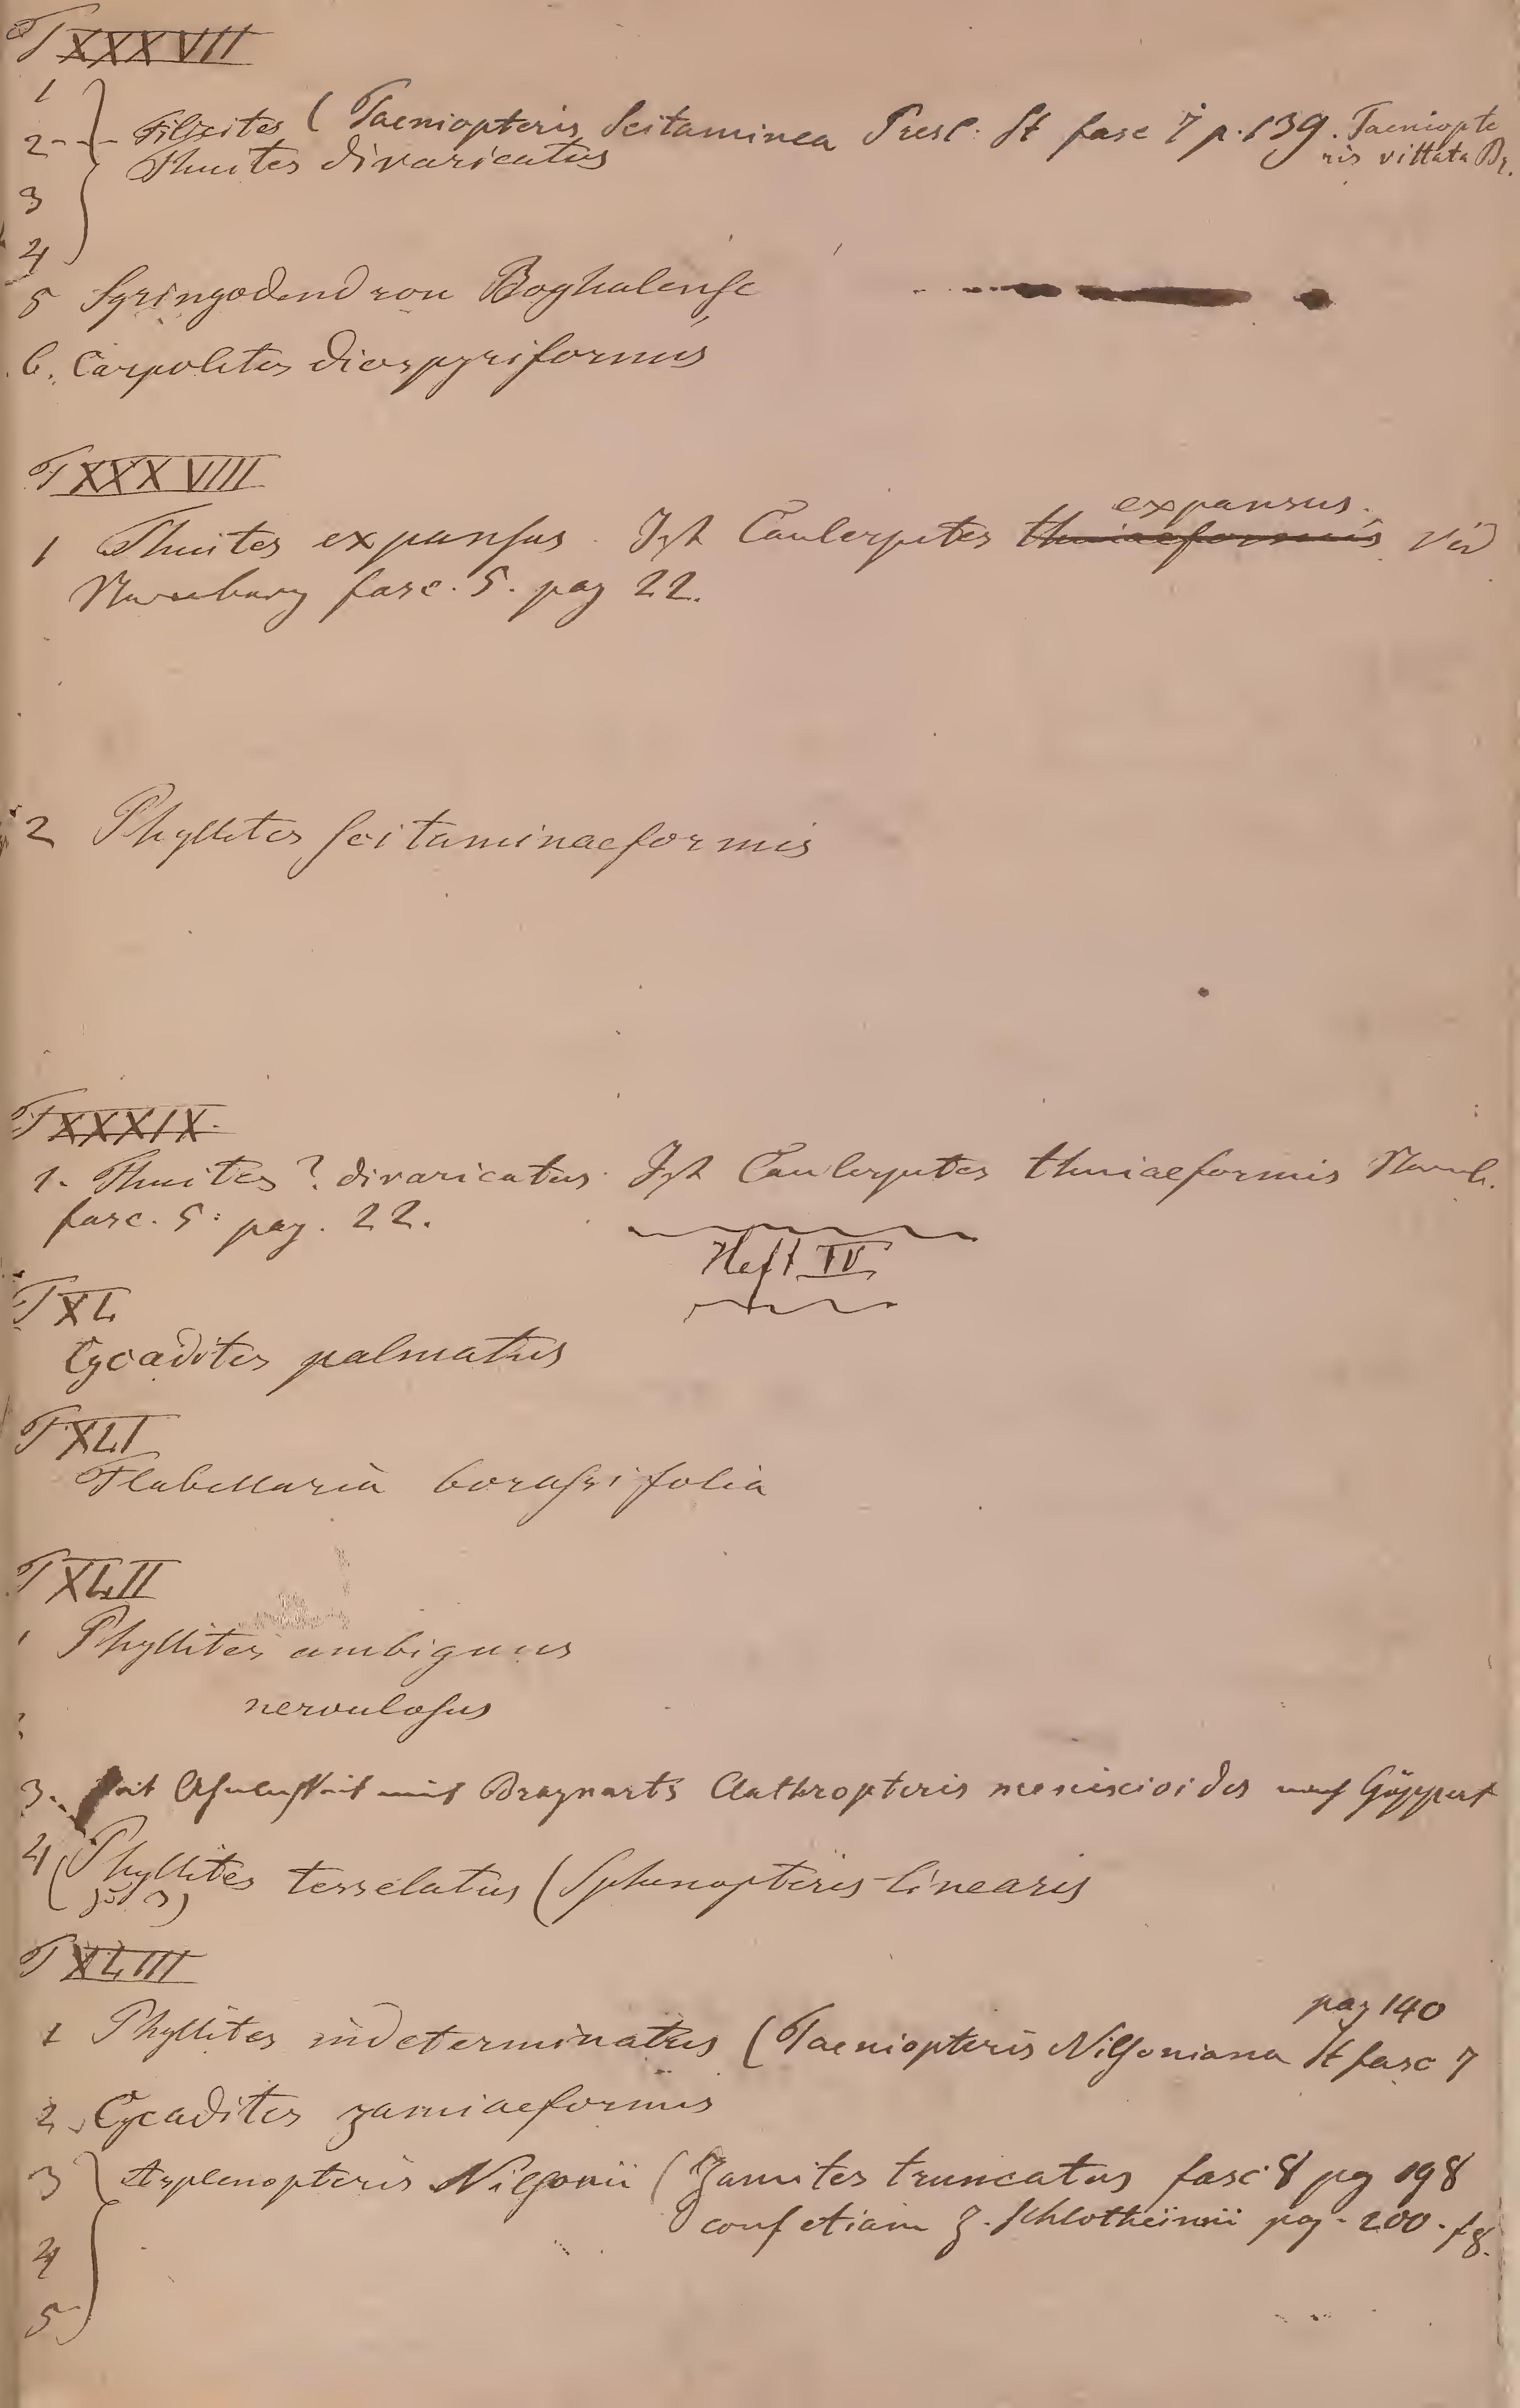 T XXXVII
1
2 - Filicites ( Taeniopteris Scitaminea Presl. St fasc 7 p. 139. Taeniopte
ris vittata Br.
Thuites divaricatus
3
4
5 Syringodendron Boghalense
6. Carpolites diospyriformis
T XXXVIII
expansus.
1 Thuites expansus. Ist Caulerpites thuiaeformis vid
fasc. 5. pag 22.
2 Phyllites scitaminaeformis
T XXXIX
1. Thuites ? divaricatus. Ist Caulerpites thuiaeformis
fasc. 5: pag. 22.
Heft IV
T XL
Cycadites palmatus
T XLI
Flabellaria borassifolia
T XLII
1 Phyllites ambiguus
nervulosus
3. hat Aehnlichkeit mit Brognarts Clathropteris meniscioides nach Göppert
4 Phyllites tesselatus (Sphenopteris linearis
T XLIII
pag 140
1 Phyllites indeterminatus (Taeniopteris Nilsoniana St fasc 7
2. Cycadites zamiaeformis
3 Asplenopteris Nilsonii (Zamites truncatus fasc 8 pg 198
conf etiam Z. Schlotheimii pag. 200. f 8.
4
5